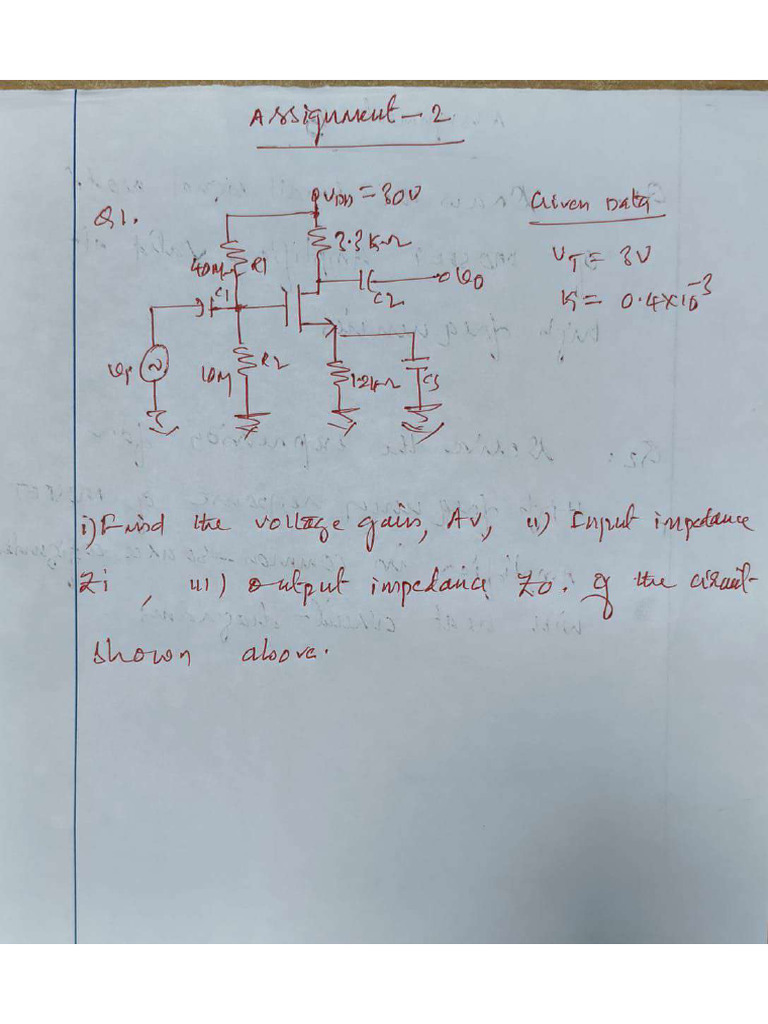 Assignment-2
Q1.
VDD = 30V
Given Data
3.3KΩ
VT = 3V
40M R1
C1
C2
Vo
K = 0.4×10⁻³
R2
10M
1.2KΩ
C3
i) Find the voltage gain, Av, ii) Input impedance
Zi, iii) output impedance Zo. of the circuit
shown above.